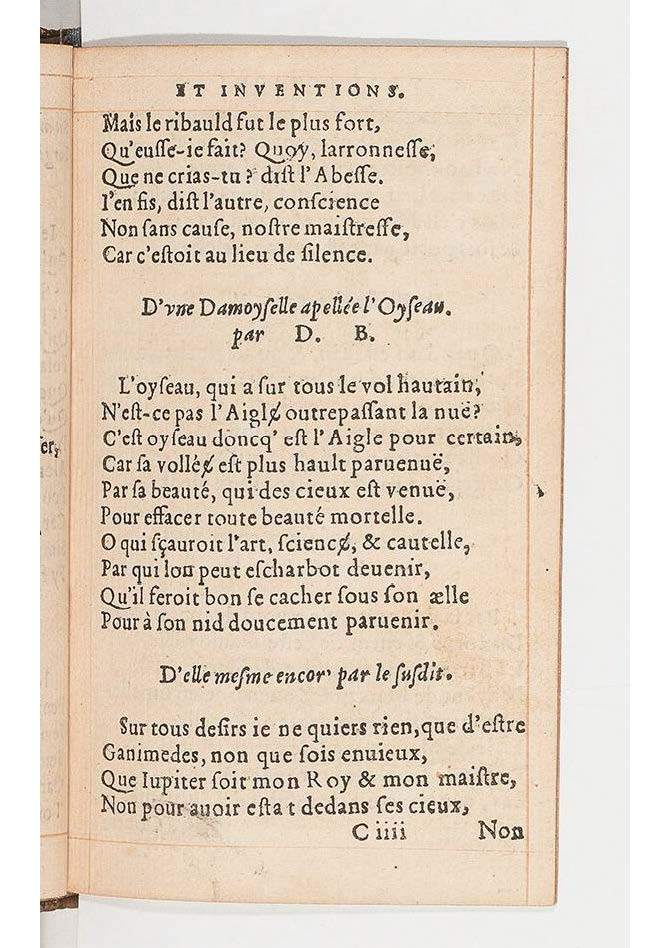 ET INVENTIONS.
Mais le ribauld fut le plus fort,
Qu'eusse-ie fait? Quoy, larronnesse,
Que ne crias-tu? dist l'Abesse.
I'en fis, dist l'autre, conscience
Non sans cause, nostre maistresse,
Car c'estoit au lieu de silence.
D'vne Damoyselle apellée l'Oyseau.
par D. B.
L'oyseau, qui a sur tous le vol hautain,
N'est-ce pas l'Aigle̸ outrepassant la nuë?
C'est oyseau doncq' est l'Aigle pour certain,
Car sa vollée̸ est plus hault paruenuë,
Par sa beauté, qui des cieux est venuë,
Pour effacer toute beauté mortelle.
O qui sçauroit l'art, science̸, & cautelle,
Par qui lon peut escharbot deuenir,
Qu'il feroit bon se cacher sous son ælle
Pour à son nid doucement paruenir.
D'elle mesme encor' par le susdit.
er,
Sur tous desirs ie ne quiers rien, que d'estre
Ganimedes, non que sois enuieux,
Que Iupiter soit mon Roy & mon maistre,
Non pour auoir estat dedans ses cieux,
C iiii Non